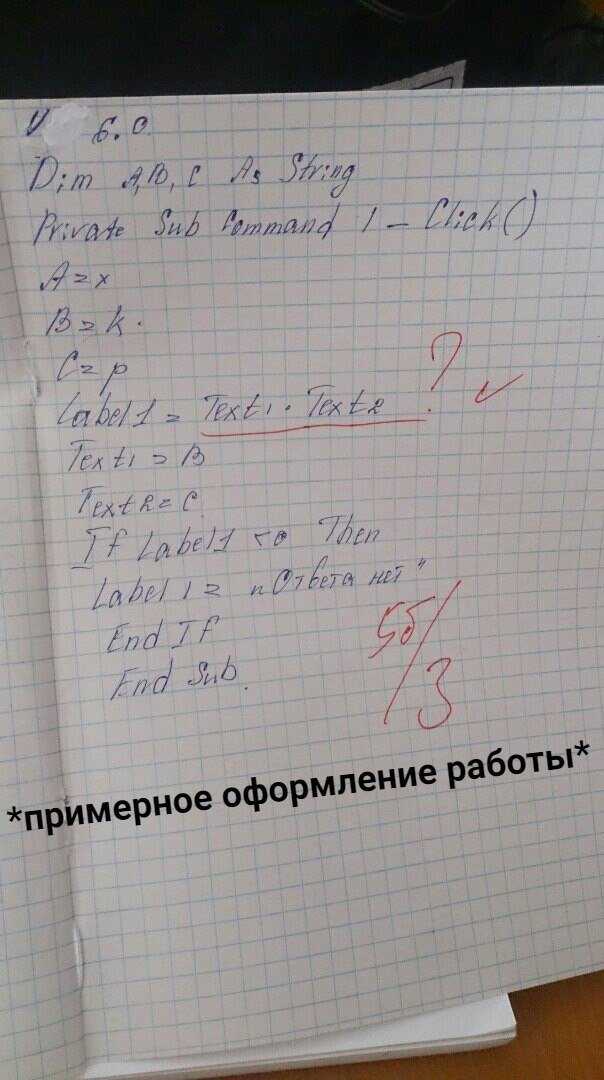 6.0.
Dim A, B, C As String
Private Sub Command 1 - Click()
A = x
B = k.
C = p
Label 1 = Text1 . Text2 ?
Text1 = B
Text2 = C.
If Label1 < 0 Then
Label 1 = "Ответа нет"
End If
End Sub.
5б/3
*примерное оформление работы*